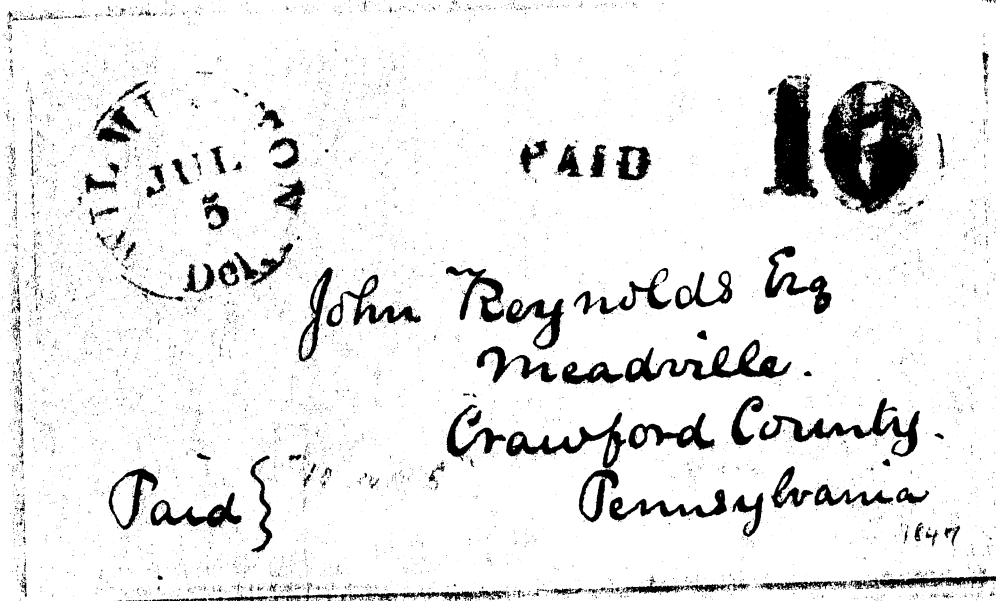 JUL
5
Del.
PAID 10
John Reynolds Esq
Meadville.
Crawford County.
Pennsylvania
Paid }
1847